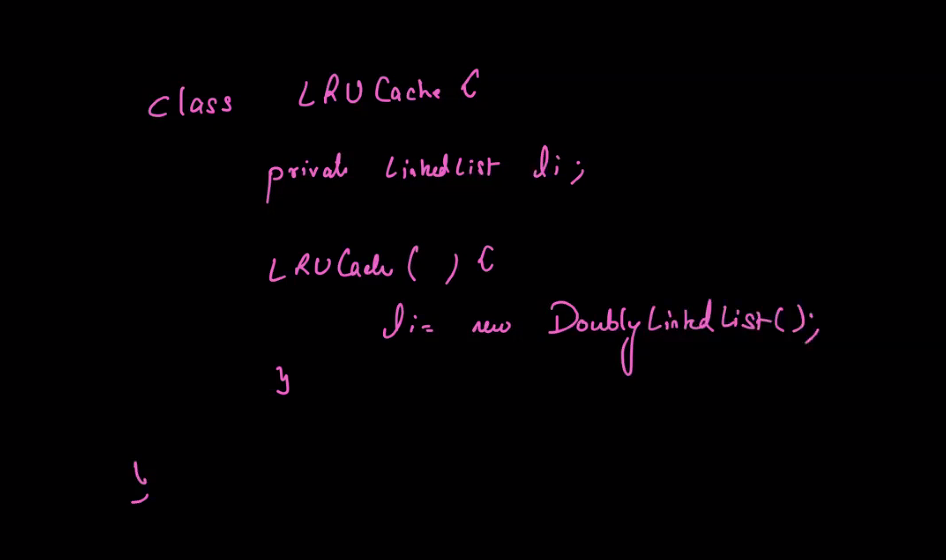 class LRUCache {
private LinkedList li;
LRUCache( ) {
li= new DoublyLinkedList();
}
}